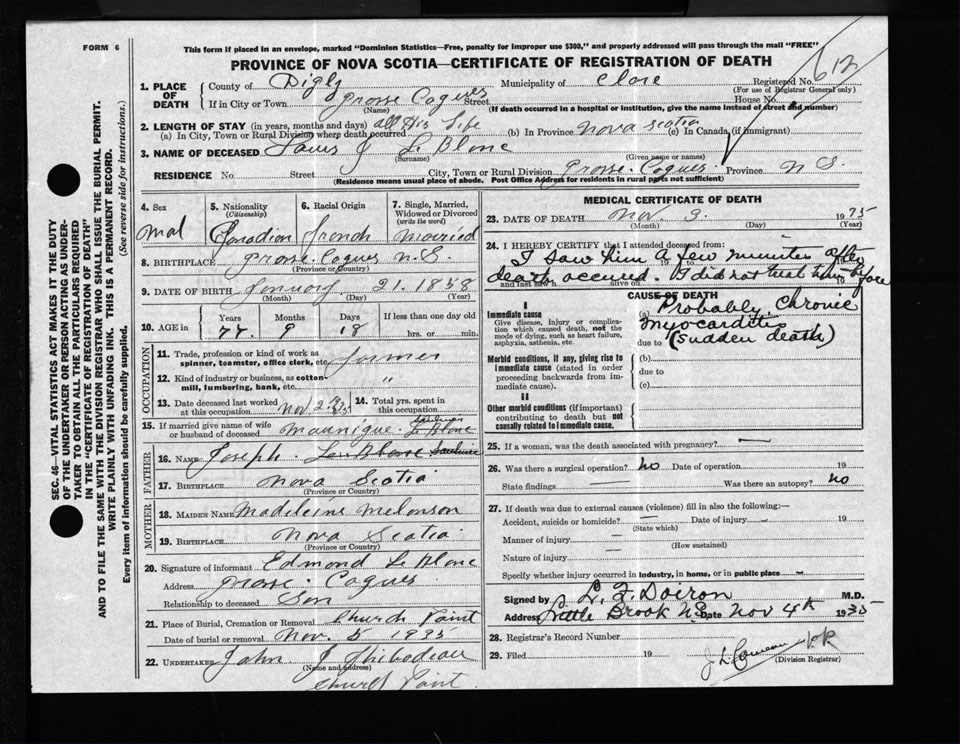 FORM 6
This form if placed in an envelope, marked "Dominion Statistics—Free, penalty for improper use $300," and properly addressed will pass through the mail "FREE"
PROVINCE OF NOVA SCOTIA—CERTIFICATE OF REGISTRATION OF DEATH
612
SEC. 46—VITAL STATISTICS ACT MAKES IT THE DUTY
OF THE UNDERTAKER OR PERSON ACTING AS UNDER-
TAKER TO OBTAIN ALL THE PARTICULARS REQUIRED
IN THE "CERTIFICATE OF REGISTRATION OF DEATH"
AND TO FILE THE SAME WITH THE DIVISION REGISTRAR WHO SHALL ISSUE THE BURIAL PERMIT.
WRITE PLAINLY WITH UNFADING INK. THIS IS A PERMANENT RECORD.
Every item of information should be carefully supplied. (See reverse side for instructions.)
1. PLACE OF DEATH
County of Digby Municipality of Clare Registered No.
(For use of Registrar General only)
If in City or Town Grosse Coques Street House No.
(Name) (If death occurred in a hospital or institution, give the name instead of street and number)
2. LENGTH OF STAY (in years, months and days)
(a) In City, Town or Rural Division where death occurred all His Life (b) In Province Nova Scotia (c) In Canada (if immigrant)
3. NAME OF DECEASED J Le Blanc
(Surname) (Given name or names)
RESIDENCE No. Street City, Town or Rural Division Grosse Coques Province N S.
(Residence means usual place of abode. Post Office Address for residents in rural parts not sufficient)
4. Sex
Mal
5. Nationality
(Citizenship)
Canadian
6. Racial Origin
French
7. Single, Married, Widowed or Divorced
(write the word)
Married
8. BIRTHPLACE Grosse Coques N.S.
(Province or Country)
9. DATE OF BIRTH January 21. 1858
(Month) (Day) (Year)
10. AGE in
Years Months Days If less than one day old
77. 9 18 hrs. or min.
OCCUPATION
11. Trade, profession or kind of work as
spinner, teamster, office clerk, etc. farmer
12. Kind of industry or business, as cotton-
mill, lumbering, bank, etc. "
13. Date deceased last worked
at this occupation Nov 2
14. Total yrs. spent in
this occupation
15. If married give name of wife
or husband of deceased Maunique Le Blanc
FATHER
16. NAME Joseph Le Blanc
17. BIRTHPLACE Nova Scotia
(Province or Country)
MOTHER
18. MAIDEN NAME Madeleins Melonson
19. BIRTHPLACE Nova Scotia
(Province or Country)
20. Signature of informant Edmond Le Blanc
Address Grosse Coques
Relationship to deceased Son
21. Place of Burial, Cremation or Removal Church Point
Date of burial or removal Nov. 5 1935
22. UNDERTAKER John J Thibodeau
(Name and address)
Church Point
MEDICAL CERTIFICATE OF DEATH
23. DATE OF DEATH Nov. 3. 1935
(Month) (Day) (Year)
24. I HEREBY CERTIFY that I attended deceased from:
I saw him a few minutes after
death occured. I did not treat him before
and last saw h alive on 19
CAUSE OF DEATH
I
Immediate cause
Give disease, injury or complica-
tion which caused death, not the
mode of dying, such as heart failure,
asphyxia, asthenia, etc.
(a) Probably Chronic
Myocarditis
due to (sudden death)
Morbid conditions, if any, giving rise to
immediate cause (stated in order
proceeding backwards from im-
mediate cause).
(b)
due to
(c)
II
Other morbid conditions (if important)
contributing to death but not
causally related to immediate cause.
25. If a woman, was the death associated with pregnancy? —
26. Was there a surgical operation? No Date of operation 19
State findings — Was there an autopsy? No
27. If death was due to external causes (violence) fill in also the following:
Accident, suicide or homicide? — Date of injury — 19
(State which)
Manner of injury —
(How sustained)
Nature of injury —
Specify whether injury occurred in industry, in home, or in public place —
Signed by L. F. Doiron M.D.
Address Little Brook N.S. Date Nov 4th 1935
28. Registrar's Record Number
29. Filed 19 Comeau
(Division Registrar)